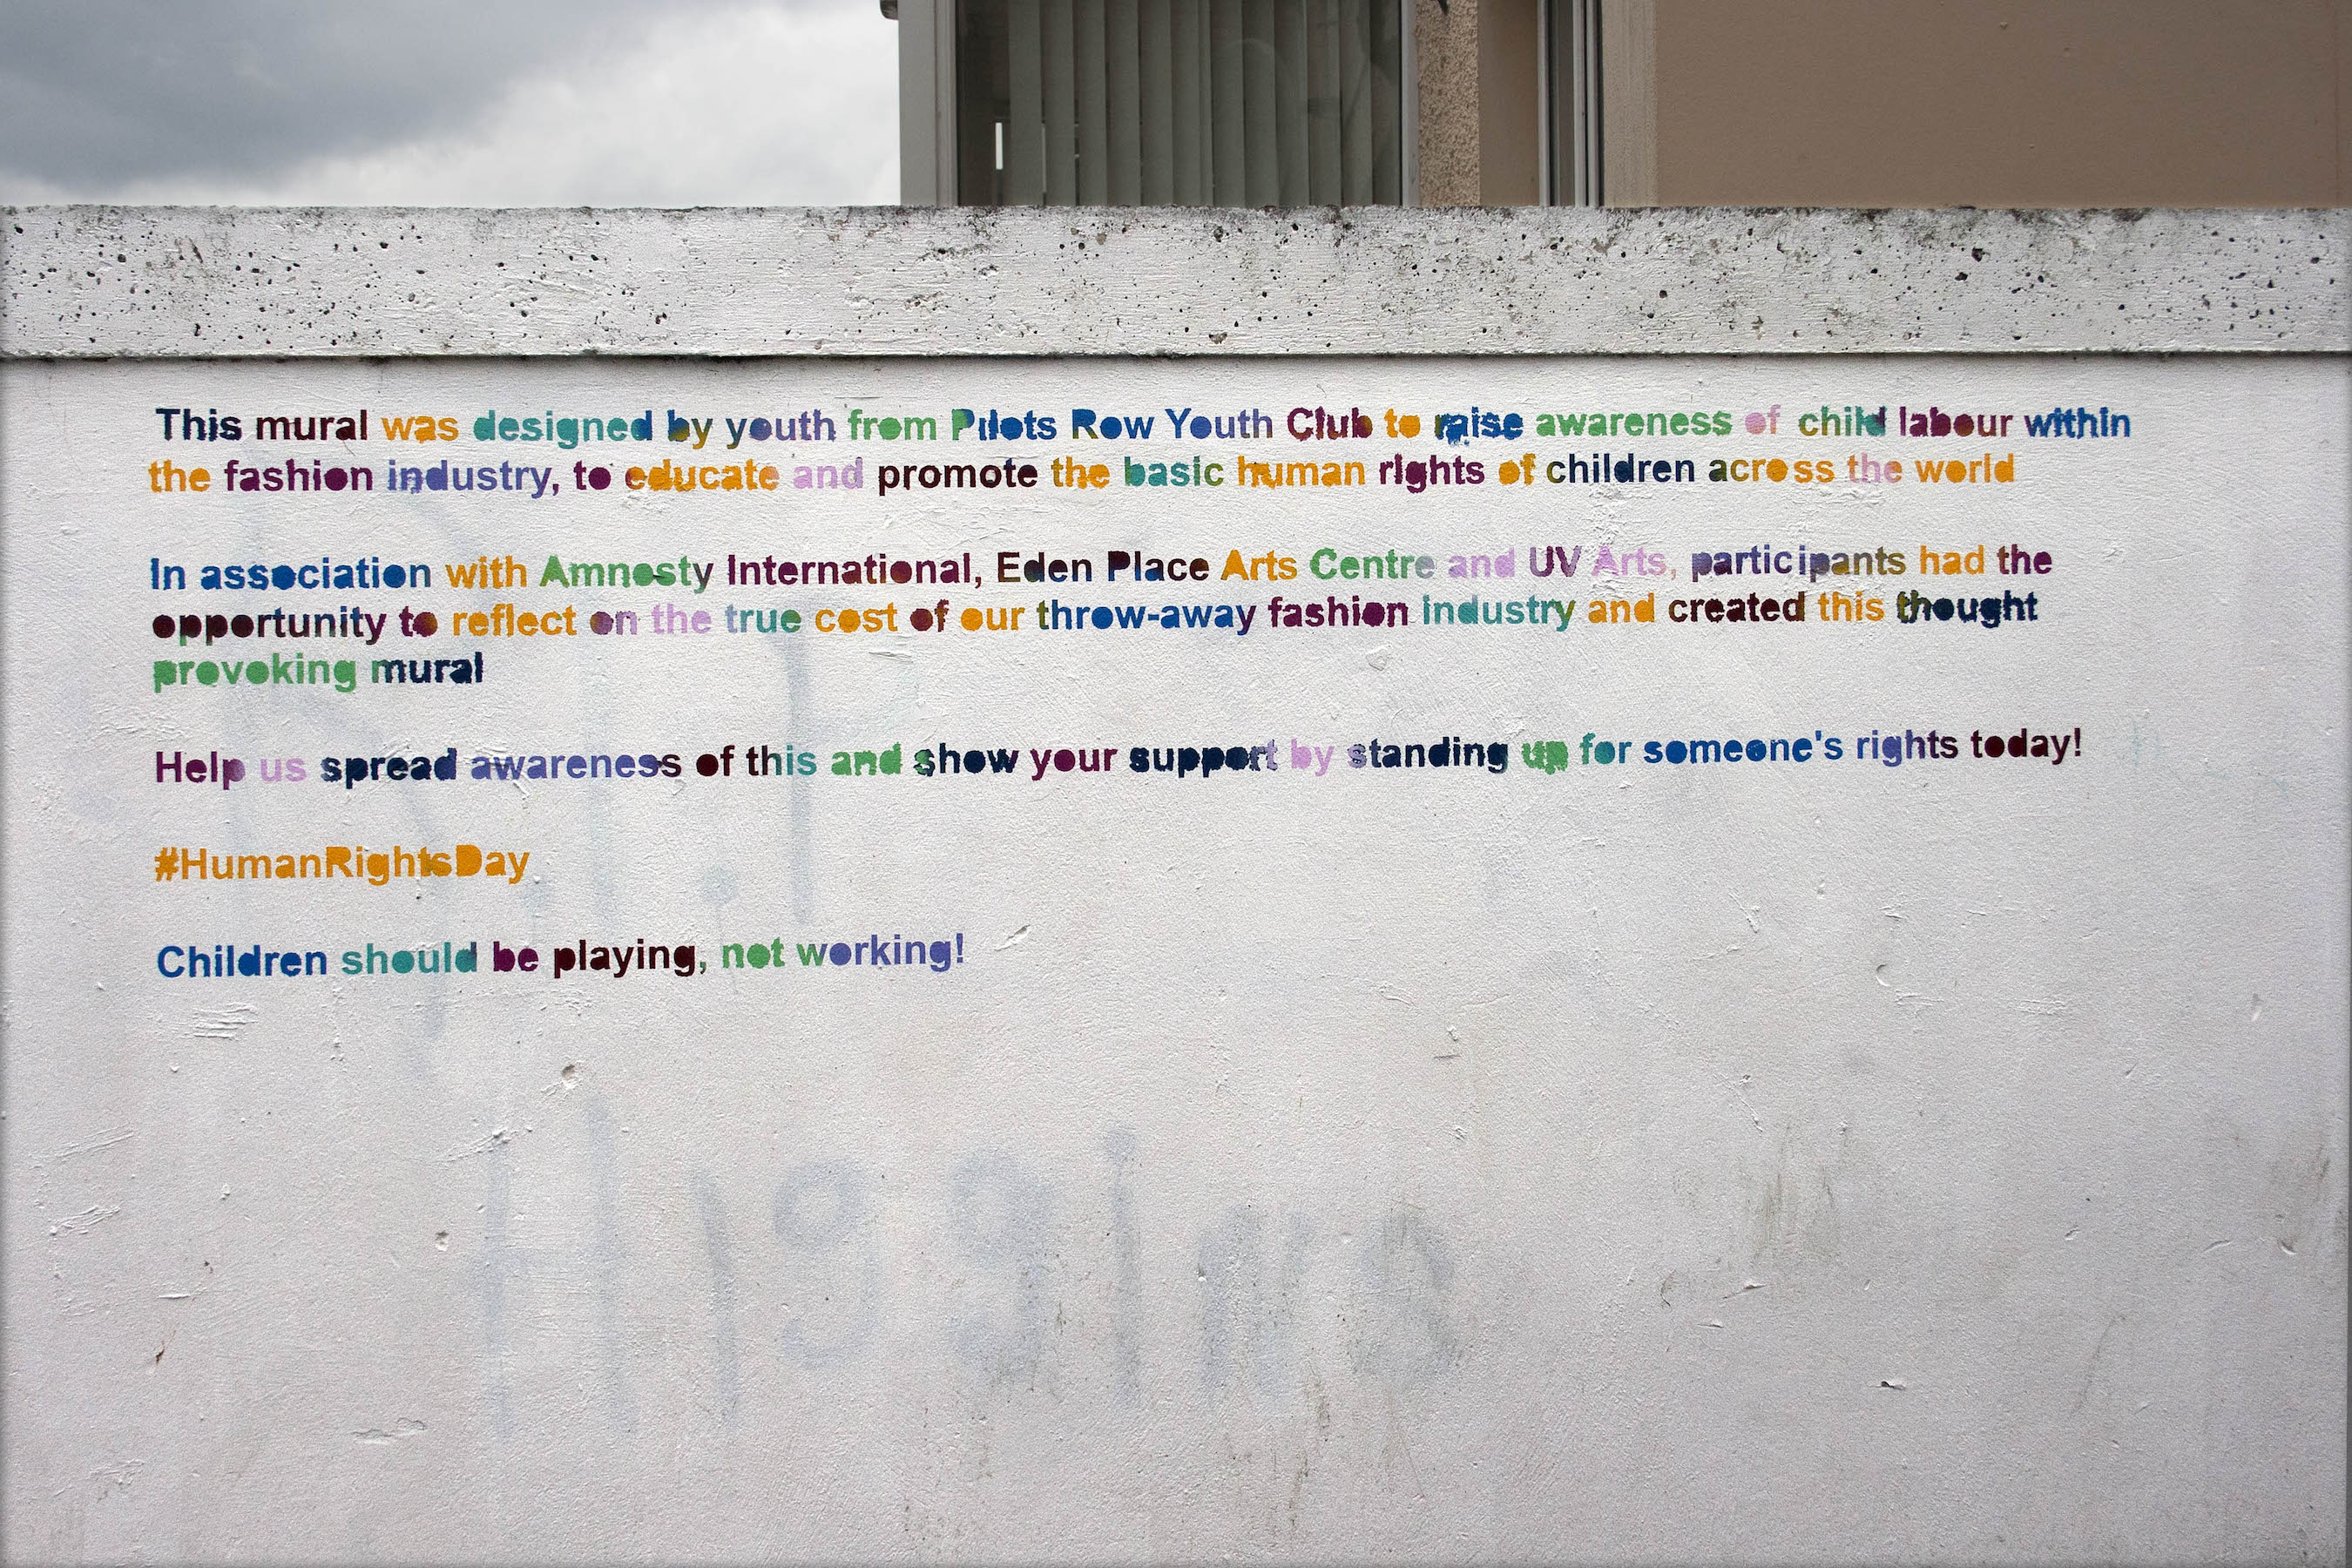 This mural was designed by youth from Pilots Row Youth Club to raise awareness of child labour within
the fashion industry, to educate and promote the basic human rights of children across the world
In association with Amnesty International, Eden Place Arts Centre and UV Arts, participants had the
opportunity to reflect on the true cost of our throw-away fashion industry and created this thought
provoking mural
Help us spread awareness of this and show your support by standing up for someone's rights today!
#HumanRightsDay
Children should be playing, not working!